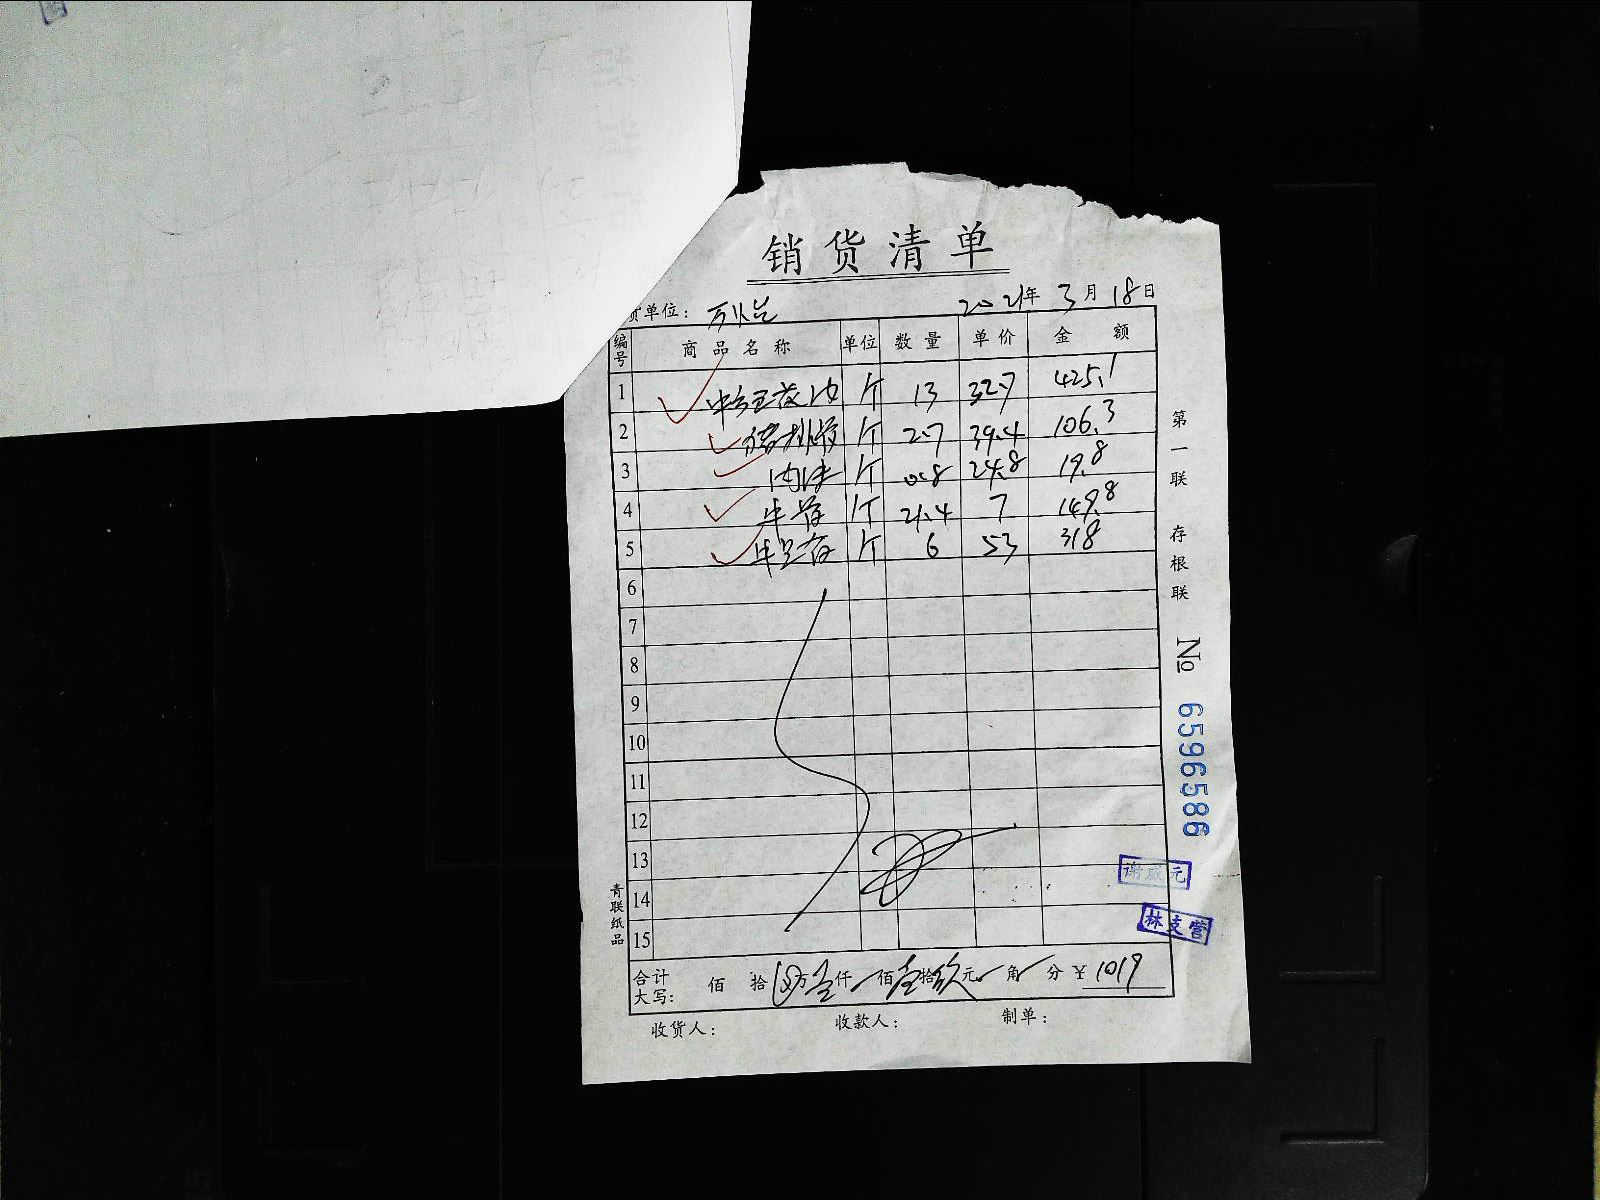 销货清单
货单位： 2021年 3月 18日
编号 商品名称 单位 数量 单价 金额
1 斤 13 32.7 425.1
2 猪排骨 斤 2.7 39.4 106.3
3 斤 0.8 24.8 19.8
4 牛骨 斤 21.4 7 149.8
5 斤 6 53 318
6
7
8
9
10
11
12
13
14
15
合计大写： 佰 拾 万 壹仟 佰 壹拾 玖元 角 分 ¥ 1019
收货人： 收款人： 制单：
第一联 存根联
№ 6596586
谢成元
林支营
青联纸品